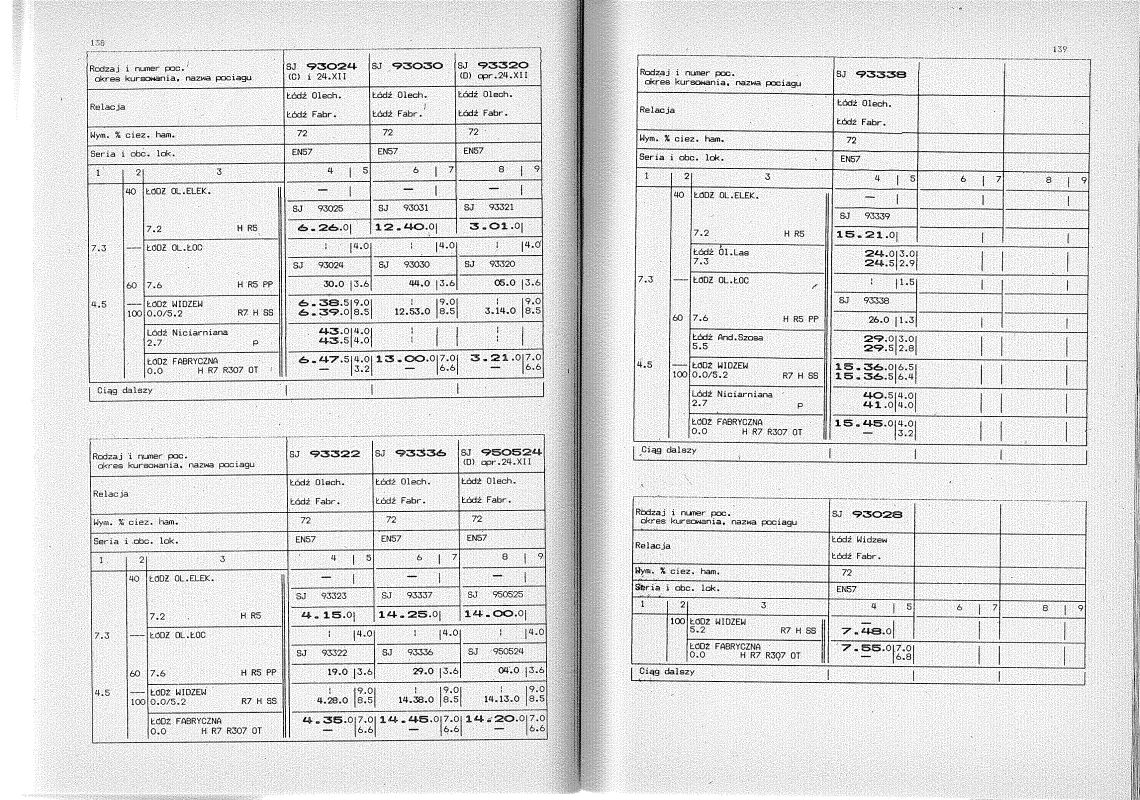 138
Rodzaj i numer poc. SJ 93024 SJ 93030 SJ 93320
okres kursowania, nazwa pociagu (C) i 24.XII (D) opr.24.XII
Łódź Olech. Łódź Olech. Łódź Olech.
Relacja
Łódź Fabr. Łódź Fabr. Łódź Fabr.
Wym. % ciez. ham. 72 72 72
Seria i obc. lok. EN57 EN57 EN57
1 2 3 4 5 6 7 8 9
40 ŁÓDŹ OL.ELEK. — — —
SJ 93025 SJ 93031 SJ 93321
7.2 H R5 6.26.0 12.40.0 3.01.0
7.3 — ŁÓDŹ OL.ŁOC ¦ 4.0 ¦ 4.0 ¦ 4.0
SJ 93024 SJ 93030 SJ 93320
60 7.6 H R5 PP 30.0 3.6 44.0 3.6 05.0 3.6
4.5 — ŁÓDŹ WIDZEW 6.38.5 9.0 ¦ 9.0 ¦ 9.0
100 0.0/5.2 R7 H SS 6.39.0 8.5 12.53.0 8.5 3.14.0 8.5
Łódź Niciarniana 43.0 4.0 ¦ ¦
2.7 p 43.5 4.0 ¦ ¦
ŁÓDŹ FABRYCZNA 6.47.5 4.0 13.00.0 7.0 3.21.0 7.0
0.0 H R7 R307 OT — 3.2 — 6.6 — 6.6
Ciąg dalszy
Rodzaj i numer poc. SJ 93322 SJ 93336 SJ 950524
okres kursowania, nazwa pociagu (D) opr.24.XII
Łódź Olech. Łódź Olech. Łódź Olech.
Relacja
Łódź Fabr. Łódź Fabr. Łódź Fabr.
Wym. % ciez. ham. 72 72 72
Seria i obc. lok. EN57 EN57 EN57
1 2 3 4 5 6 7 8 9
40 ŁÓDŹ OL.ELEK. — — —
SJ 93323 SJ 93337 SJ 950525
7.2 H R5 4.15.0 14.25.0 14.00.0
7.3 — ŁÓDŹ OL.ŁOC ¦ 4.0 ¦ 4.0 ¦ 4.0
SJ 93322 SJ 93336 SJ 950524
60 7.6 H R5 PP 19.0 3.6 29.0 3.6 04.0 3.6
4.5 — ŁÓDŹ WIDZEW ¦ 9.0 ¦ 9.0 ¦ 9.0
100 0.0/5.2 R7 H SS 4.28.0 8.5 14.38.0 8.5 14.13.0 8.5
ŁÓDŹ FABRYCZNA 4.35.0 7.0 14.45.0 7.0 14.20.0 7.0
0.0 H R7 R307 OT — 6.6 — 6.6 — 6.6
139
Rodzaj i numer poc. SJ 93338
okres kursowania, nazwa pociagu
Łódź Olech.
Relacja
Łódź Fabr.
Wym. % ciez. ham. 72
Seria i obc. lok. EN57
1 2 3 4 5 6 7 8 9
40 ŁÓDŹ OL.ELEK. —
SJ 93339
7.2 H R5 15.21.0
Łódź Ol.Las 24.0 3.0
7.3 24.5 2.9
7.3 — ŁÓDŹ OL.ŁOC ¦ 1.5
SJ 93338
60 7.6 H R5 PP 26.0 1.3
Łódź And.Szosa 29.0 3.0
5.5 29.5 2.8
4.5 — ŁÓDŹ WIDZEW 15.36.0 6.5
100 0.0/5.2 R7 H SS 15.36.5 6.4
Łódź Niciarniana 40.5 4.0
2.7 p 41.0 4.0
ŁÓDŹ FABRYCZNA 15.45.0 4.0
0.0 H R7 R307 OT — 3.2
Ciąg dalszy
Rodzaj i numer poc. SJ 93028
okres kursowania, nazwa pociagu
Łódź Widzew
Relacja
Łódź Fabr.
Wym. % ciez. ham. 72
Seria i obc. lok. EN57
1 2 3 4 5 6 7 8 9
100 ŁÓDŹ WIDZEW —
5.2 R7 H SS 7.48.0
ŁÓDŹ FABRYCZNA 7.55.0 7.0
0.0 H R7 R307 OT — 6.8
Ciąg dalszy